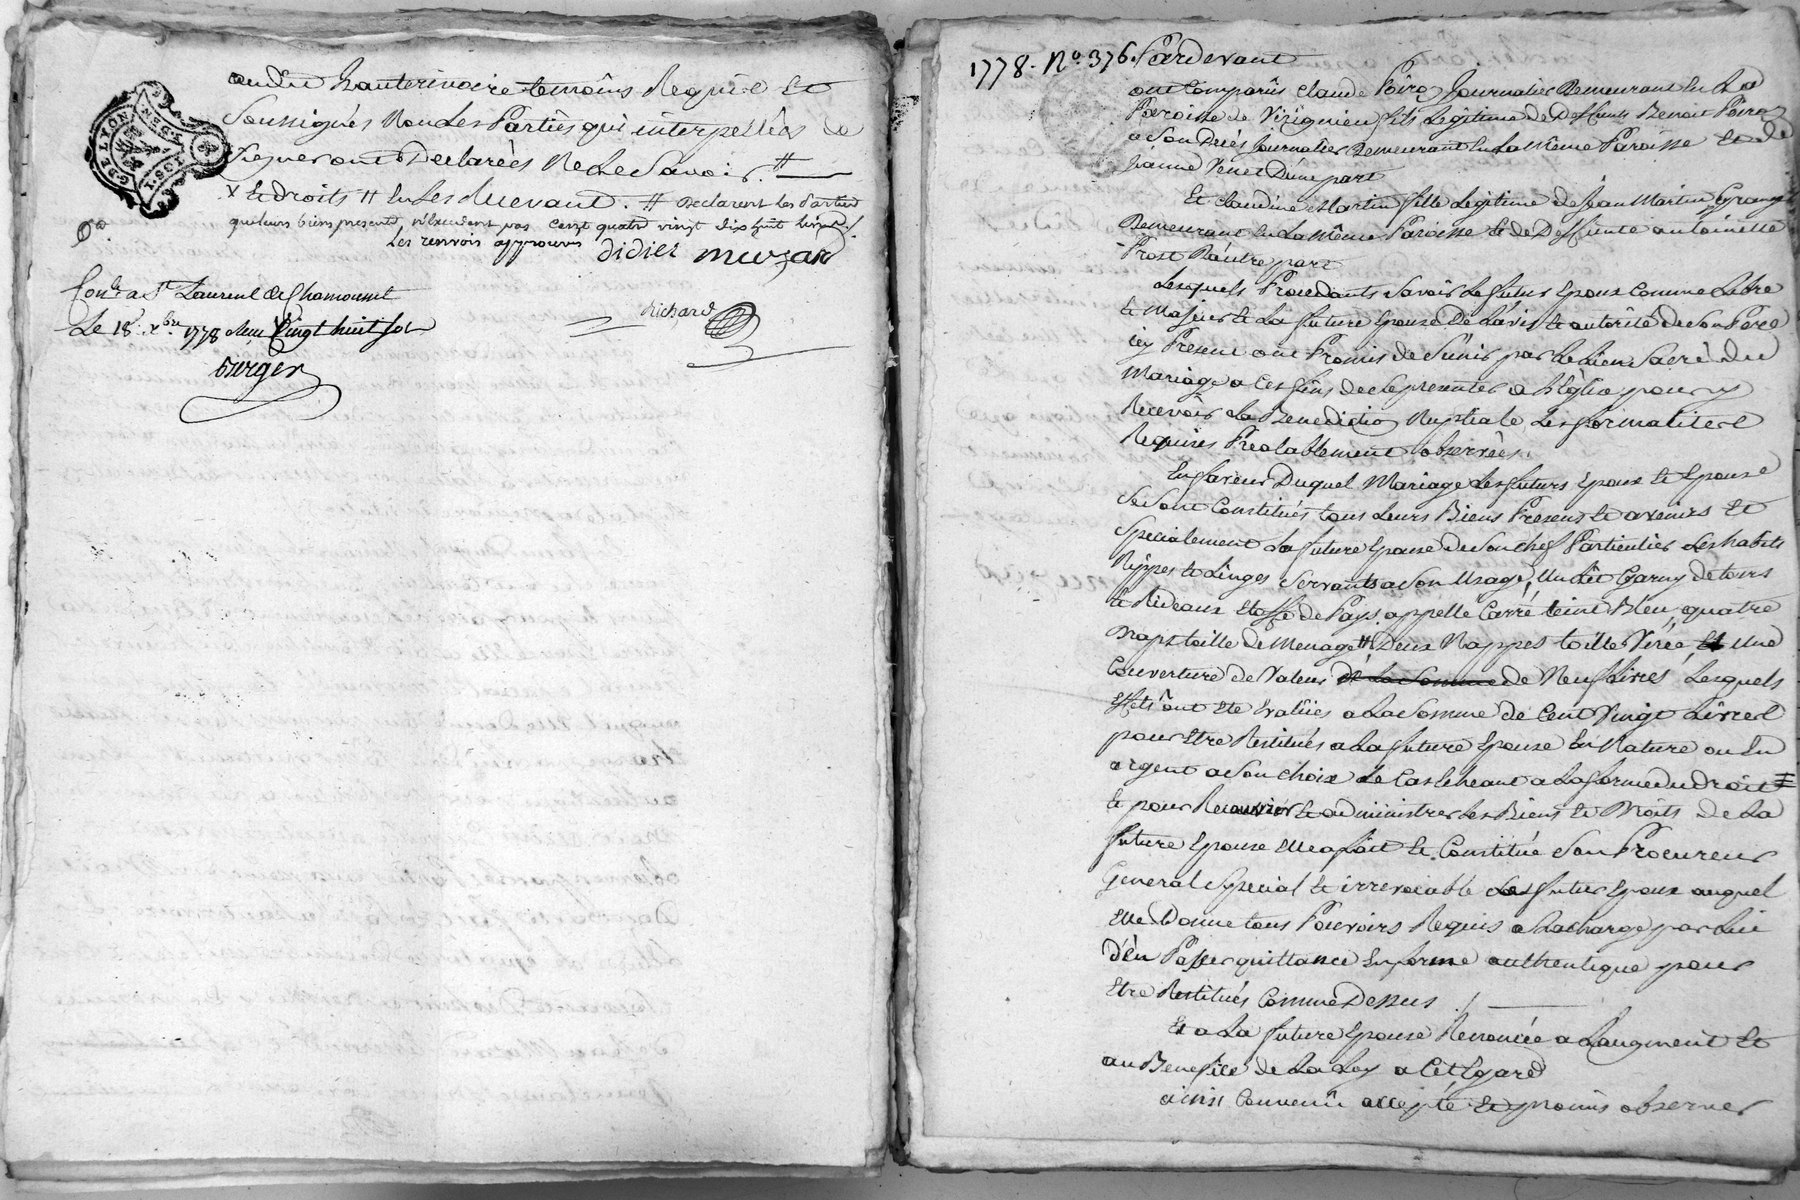 audit hauterivoire temoins Requis Et
Soussignés Non Les Parties qui interpellées de
Signer ont Declarées Ne Le Savoir. #
x Et droits # En Les Relevant. # Declarent Les Parties
que leurs biens presents n'Excedent pas cent quatre vingt dix huit livres.
Les renvois approuvés
didier muzard
Richard
Conlé a St Laurent de Chamousset
Le 18 xbre 1778 Reçu Vingt huit sols
Burger
G DE LYON
1778. No. 376. Pardevant
ont Comparûs Claude Poiro Journalier Demeurant En La
Paroisse de Virignieu fils Légitime de Deffunts Benoit Poiro
a Son Decés Journalier Demeurant En La Même Paroisse Et de
Jeanne Venet D'une part
Et Claudine Martin fille Légitime de Jean Martin Granger
Demeurant En La Même Paroisse Et de Deffunte antoinette
Prost D'autre part
Lesquels Procedants Savoir Le futur Epoux Comme Libre
Et Majeur Et La future Epouse De L'avis Et autorité de Son Pere
icy Present ont Promis de S'unir par Le Lien Sacré du
Mariage a Ces fins de Se presenter a L'Eglise pour y
Recevoir La Benediction Nuptiale Les formalités
Requises Préalablement observées.
En faveur Duquel Mariage Les futurs Epoux Et Epouse
Se Sont Constitués tous Leurs Biens Presens Et avenirs Et
Specialement La future Epouse de Son Chef Particulier Les habits
Nippes Et Linges Servants a Son Usage, Un Lit Garny de tours
Et Rideaux Etoffe de Pays appellé Carré teint Bleu, quatre
Draps toille de Menage # Deux Nappes toille Virée, Et Une
Couverture de Valeur de La Somme de Neuf Livres, Lesquels
Effets ont Eté Evalüés a La Somme de Cent Vingt Livres
pour Etre Restitués a La future Epouse En Nature ou En
argent a Son Choix Le Cas Echeant a La forme du Droit
Et pour Recouvrer Et administrer Les Biens Et Droits De La
future Epouse Elle a fait Et Constitué Son Procureur
General Special Et irrevocable Le futur Epoux auquel
Elle Donne tous Pouvoirs Requis a La charge par Lui
D'en Passer quittance En forme authentique pour
Etre Restitués Comme Dessus
Et a La future Epouse Renoncée a L'augment Et
au Benefice de La Loy a Cet Egard
ainsi Convenu accepté Et promis observer